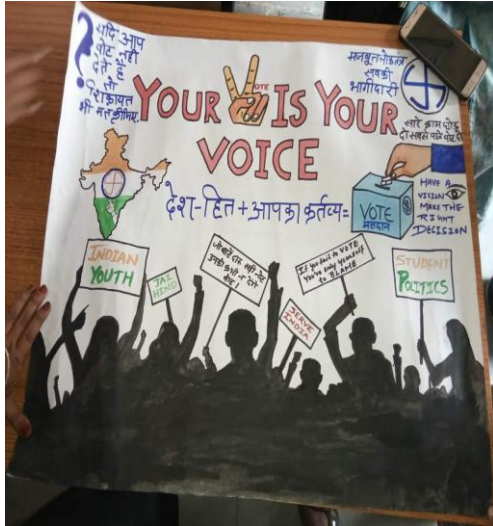 यदि आप
वोट नही
देते हैं
तो
शिकायत
भी मत कीजिए
?
मजबूत लोकतंत्र
सबकी
भागीदारी
सारे काम छोड़ दो
सबसे पहले वोट दो
YOUR VOTE IS YOUR
VOICE
देश-हित + आपका कर्तव्य =
VOTE
मतदान
HAVE A
VISION
MAKE THE
RIGHT
DECISION
INDIAN
YOUTH
JAI
HIND
If you fail to VOTE
you've only yourself
to BLAME
SERVE
INDIA
STUDENT
POLITICS